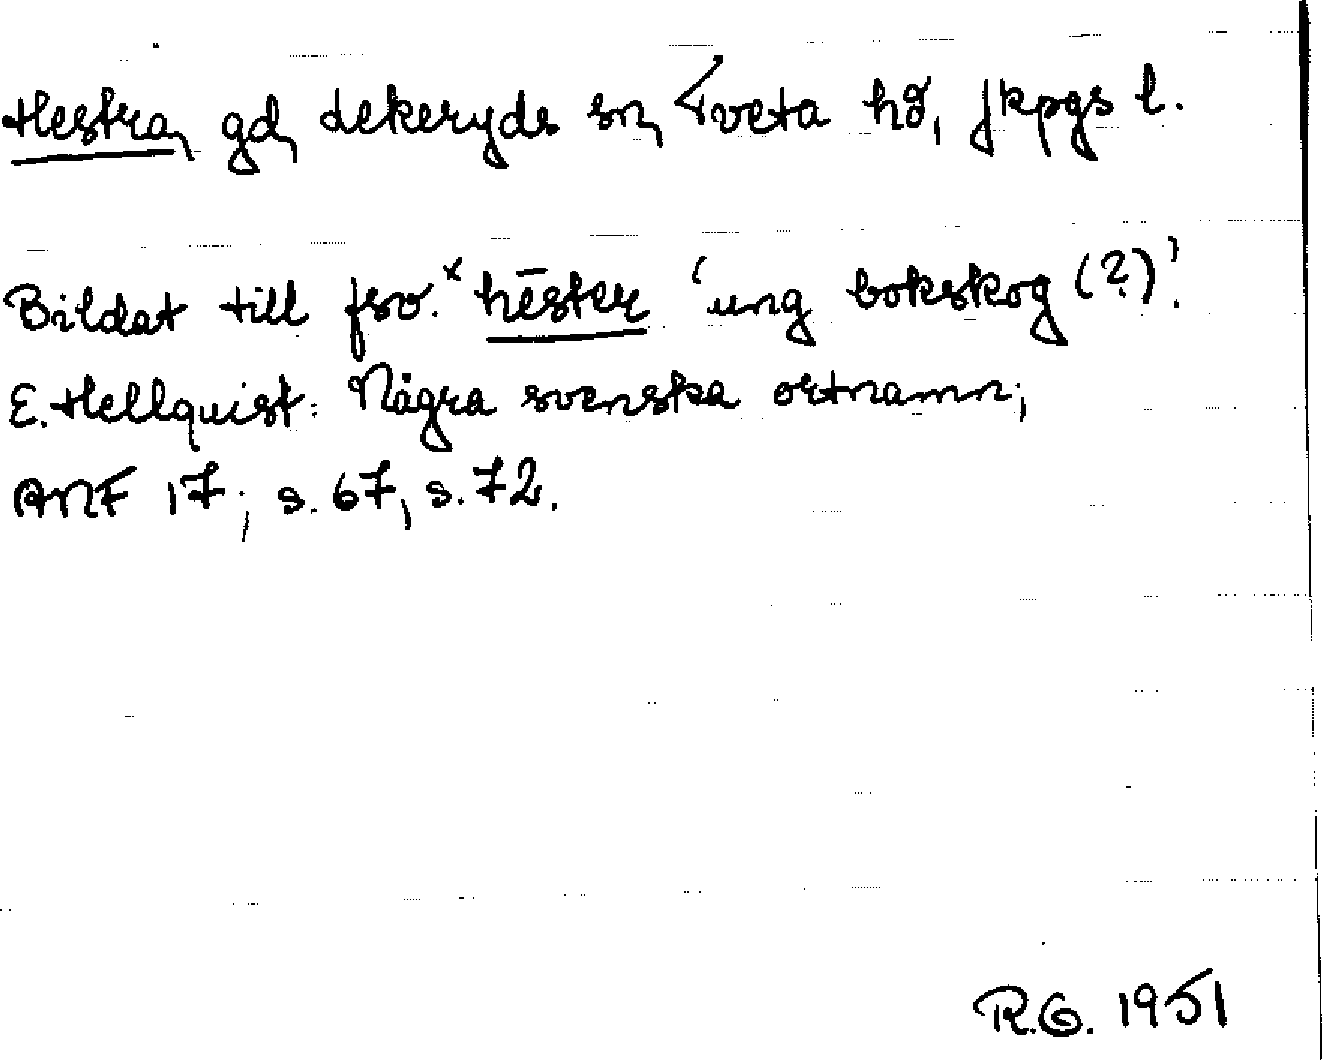 Hestra, gd, Lekeryds sn, Tveta hd, Jkpgs l.
Bildat till fsv. *hēster 'ung bokskog (?)'.
E. Hellquist: Några svenska ortnamn;
ANF 17; s. 67, s. 72.
R.G. 1951